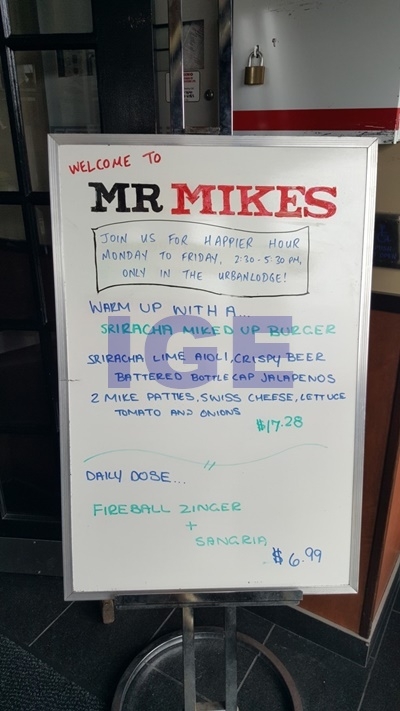 WELCOME TO
MR MIKES
JOIN US FOR HAPPIER HOUR
MONDAY TO FRIDAY, 2:30-5:30 PM,
ONLY IN THE URBANLODGE!
WARM UP WITH A...
SRIRACHA MIKED UP BURGER
IGE
SRIRACHA LIME AIOLI, CRISPY BEER
BATTERED BOTTLE CAP JALAPENOS
2 MIKE PATTIES, SWISS CHEESE, LETTUCE
TOMATO AND ONIONS
$17.28
DAILY DOSE...
FIREBALL ZINGER
+
SANGRIA
$6.99